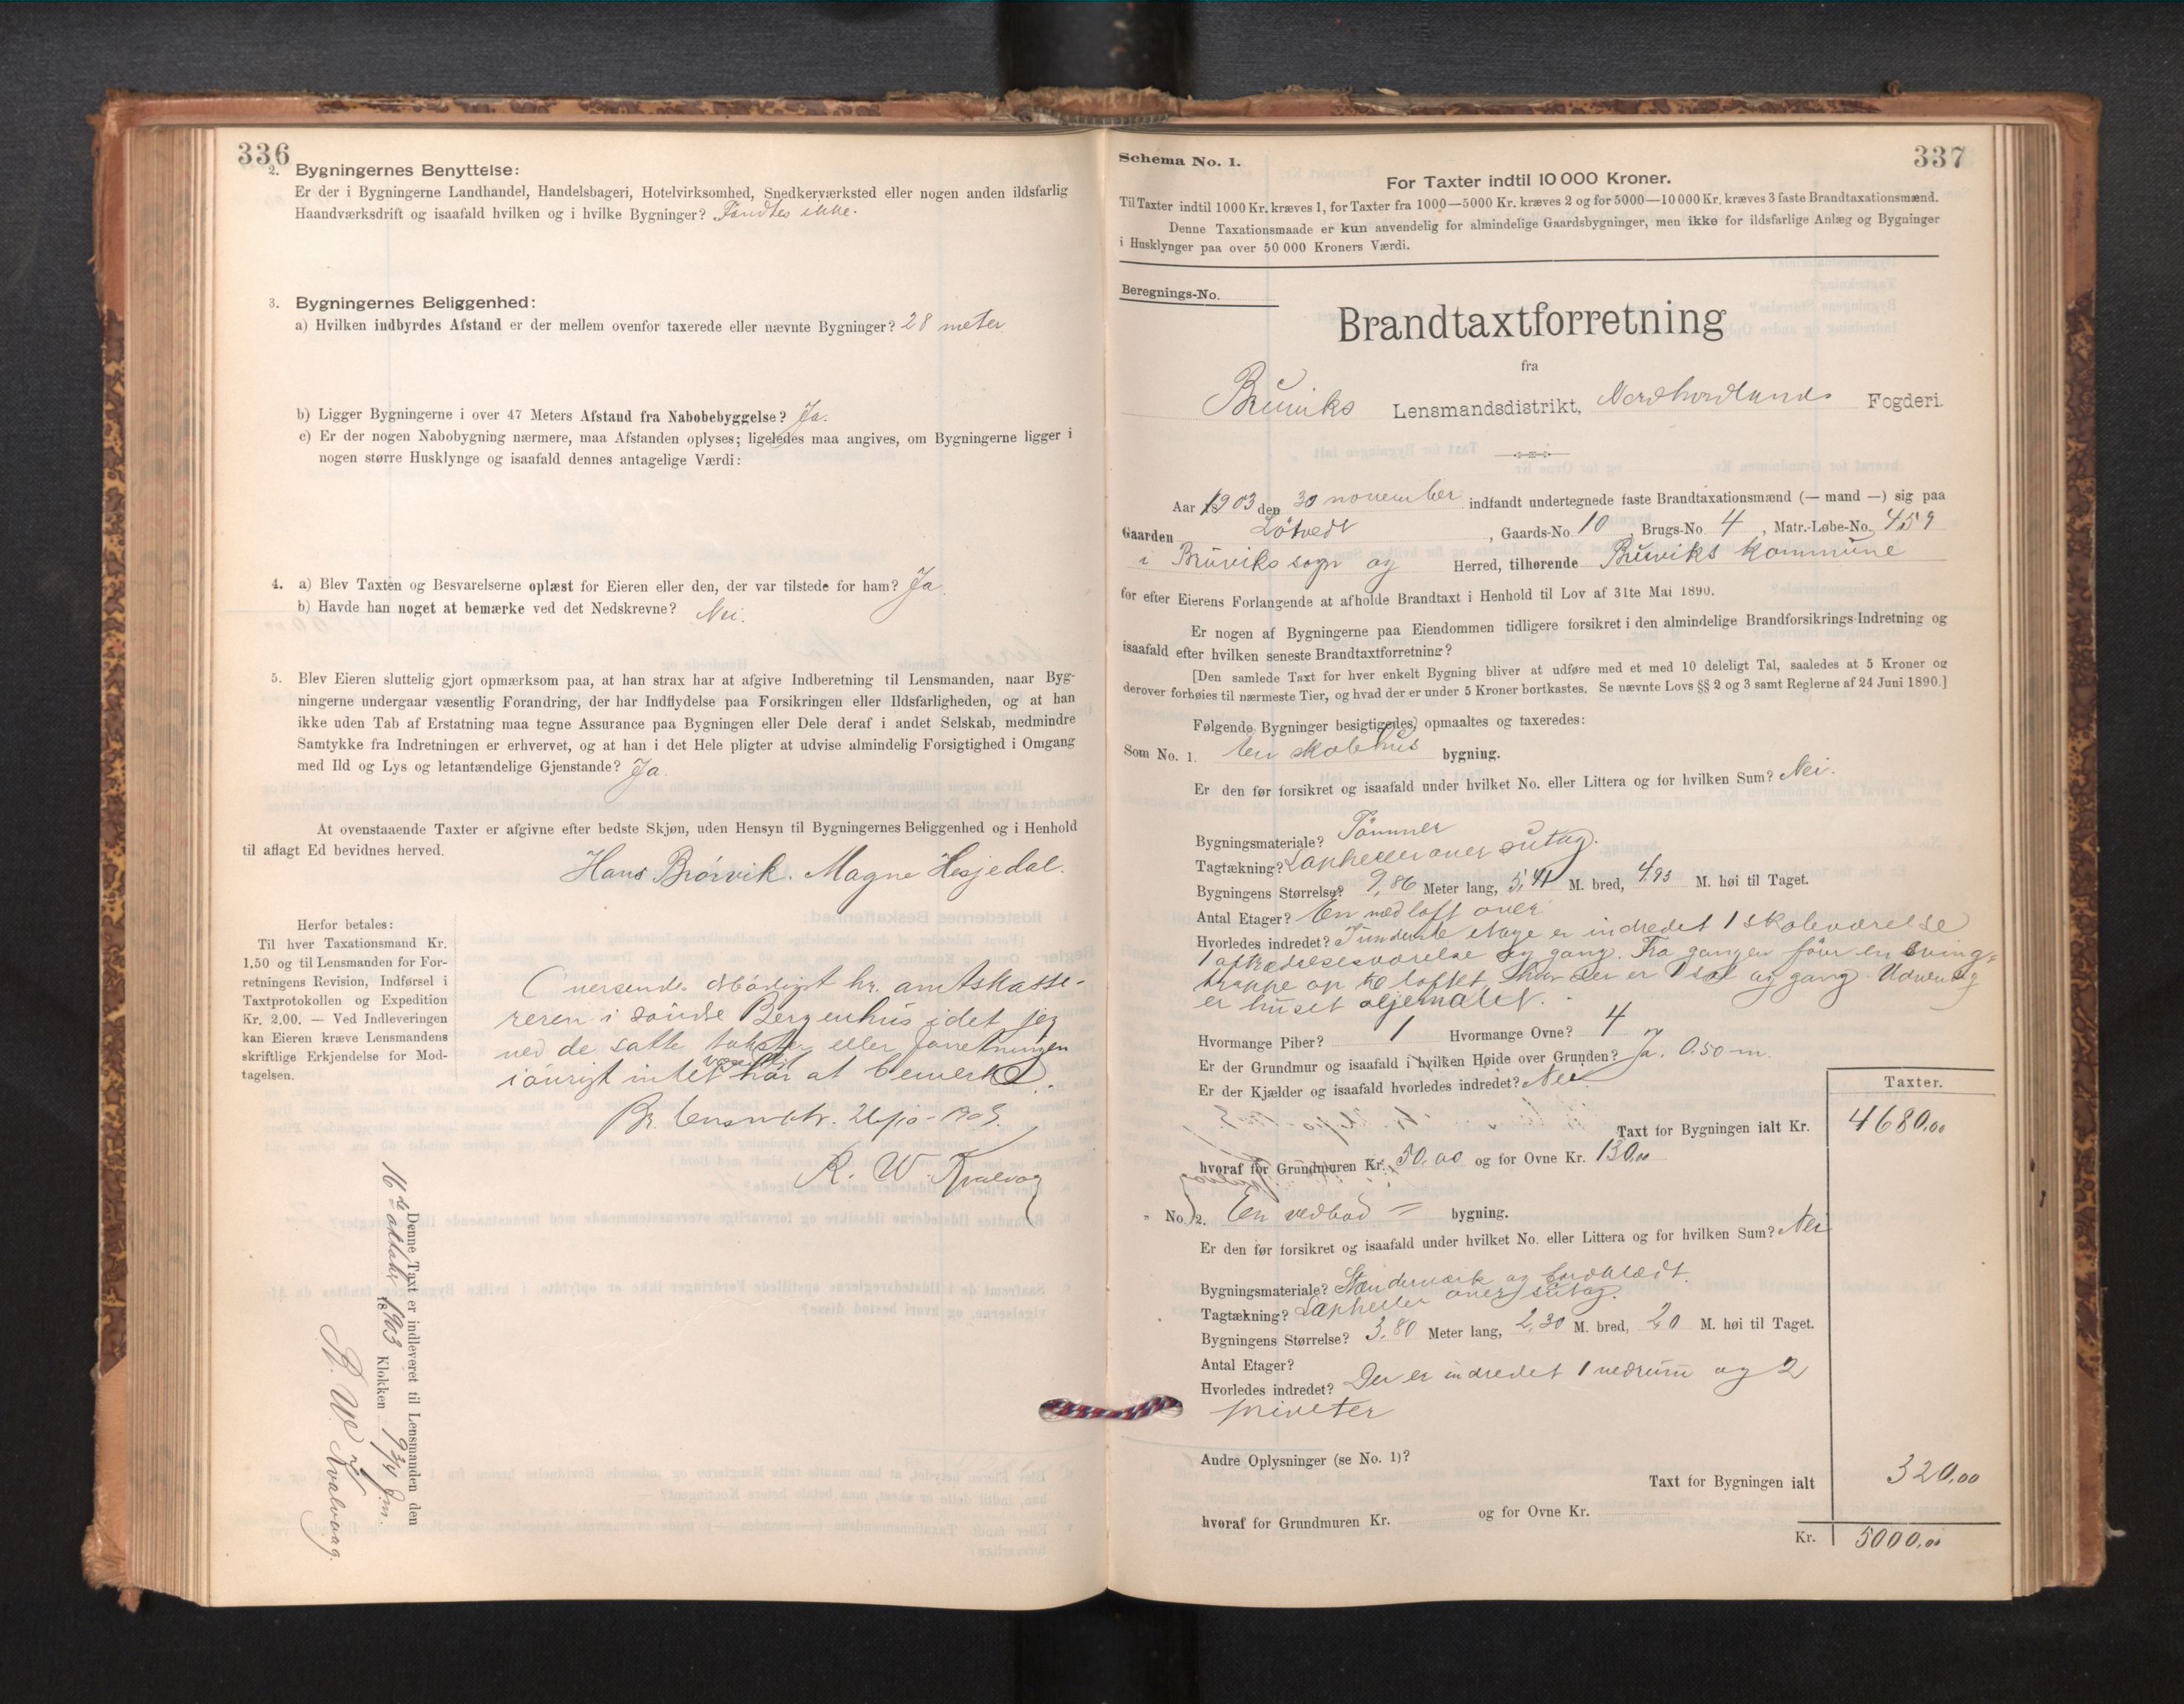 336
2. Bygningernes Benyttelse:
Er der i Bygningerne Landhandel, Handelsbageri, Hotelvirksomhed, Snedkerværksted eller nogen anden ildsfarlig
Haandværksdrift og isaafald hvilken og i hvilke Bygninger? Fandtes ikke.
3. Bygningernes Beliggenhed:
a) Hvilken indbyrdes Afstand er der mellem ovenfor taxerede eller nævnte Bygninger? 28 meter
b) Ligger Bygningerne i over 47 Meters Afstand fra Nabobebyggelse? Ja.
c) Er der nogen Nabobygning nærmere, maa Afstanden oplyses; ligeledes maa angives, om Bygningerne ligger i
nogen større Husklynge og isaafald dennes antagelige Værdi:
4. a) Blev Taxten og Besvarelserne oplæst for Eieren eller den, der var tilstede for ham? Ja.
b) Havde han noget at bemærke ved det Nedskrevne? Nei.
5. Blev Eieren sluttelig gjort opmærksom paa, at han strax har at afgive Indberetning til Lensmanden, naar Byg-
ningerne undergaar væsentlig Forandring, der har Indflydelse paa Forsikringen eller Ildsfarligheden, og at han
ikke uden Tab af Erstatning maa tegne Assurance paa Bygningen eller Dele deraf i andet Selskab, medmindre
Samtykke fra Indretningen er erhvervet, og at han i det Hele pligter at udvise almindelig Forsigtighed i Omgang
med Ild og Lys og letantændelige Gjenstande? Ja.
At ovenstaaende Taxter er afgivne efter bedste Skjøn, uden Hensyn til Bygningernes Beliggenhed og i Henhold
til aflagt Ed bevidnes herved.
Hans Brørvik. Magne Hesjedal.
Herfor betales:
Til hver Taxationsmand Kr.
1.50 og til Lensmanden for For-
retningens Revision, Indførsel i
Taxtprotokollen og Expedition
Kr. 2.00. — Ved Indleveringen
kan Eieren kræve Lensmandens
skriftlige Erkjendelse for Mod-
tagelsen.
Oversendes ærbødigst hr. amtskasse-
reren i søndre Bergenhus idet jeg
ved de satte takster eller forretningen
iøvrigt intet har at bemerke.
Br. lensmktr. 26/10-1903.
R. W. Kvalvaag
Denne Taxt er indleveret til Lensmanden den
16de oktober 1903 Klokken 9 3/4 fm.
R. W. Kvalvaag.
337
Schema No. 1.
For Taxter indtil 10 000 Kroner.
Til Taxter indtil 1000 Kr. kræves 1, for Taxter fra 1000—5000 Kr. kræves 2 og for 5000—10 000 Kr. kræves 3 faste Brandtaxationsmænd.
Denne Taxationsmaade er kun anvendelig for almindelige Gaardsbygninger, men ikke for ildsfarlige Anlæg og Bygninger
i Husklynger paa over 50 000 Kroners Værdi.
Beregnings-No.
Brandtaxtforretning
fra
Bruviks Lensmandsdistrikt, Nordhordlands Fogderi.
Aar 1903 den 30 november indfandt undertegnede faste Brandtaxationsmænd (— mand —) sig paa
Gaarden Løtvedt, Gaards-No. 10 Brugs-No 4, Matr.-Løbe-No. 459
i Bruviks sogn og Herred, tilhørende Bruviks kommune
for efter Eierens Forlangende at afholde Brandtaxt i Henhold til Lov af 31te Mai 1890.
Er nogen af Bygningerne paa Eiendommen tidligere forsikret i den almindelige Brandforsikrings-Indretning og
isaafald efter hvilken seneste Brandtaxtforretning?
[Den samlede Taxt for hver enkelt Bygning bliver at udføre med et med 10 deleligt Tal, saaledes at 5 Kroner og
derover forhøies til nærmeste Tier, og hvad der er under 5 Kroner bortkastes. Se nævnte Lovs §§ 2 og 3 samt Reglerne af 24 Juni 1890.]
Følgende Bygninger besigtigedes, opmaaltes og taxeredes:
Som No. 1. En skolehus bygning.
Er den før forsikret og isaafald under hvilket No. eller Littera og for hvilken Sum? Nei.
Bygningsmateriale? Tømmer
Tagtækning? Lapheller over sutag.
Bygningens Størrelse? 9,86 Meter lang, 5,41 M. bred, 4.93 M. høi til Taget.
Antal Etager? En med loft over
Hvorledes indredet? I underste etage er indredet 1 skoleværelse
1 afklædelsesværelse og gang. Fra gangen fører en sving-
trappe op til loftet, hvor der er 1 sal og gang. Udvendig
er huset oljemalet.
Hvormange Piber? 1 Hvormange Ovne? 4
Er der Grundmur og isaafald i hvilken Høide over Grunden? Ja. 0.50 m.
Er der Kjælder og isaafald hvorledes indredet? Nei
Taxter.
Taxt for Bygningen ialt Kr. 4680,00
hvoraf for Grundmuren Kr. 50,00 og for Ovne Kr. 130,00
" No. 2. En vedbod = bygning.
Er den før forsikret og isaafald under hvilket No. eller Littera og for hvilken Sum? Nei
Bygningsmateriale? Stænderværk og bordklædt.
Tagtækning? Lapheller over sutag.
Bygningens Størrelse? 3,80 Meter lang, 2,30 M. bred, 2,0 M. høi til Taget.
Antal Etager?
Hvorledes indredet? Der er indredet 1 vedrum og 2
priveter
Andre Oplysninger (se No. 1)?
Taxt for Bygningen ialt 320,00
hvoraf for Grundmuren Kr. og for Ovne Kr.
Kr. 5000,00